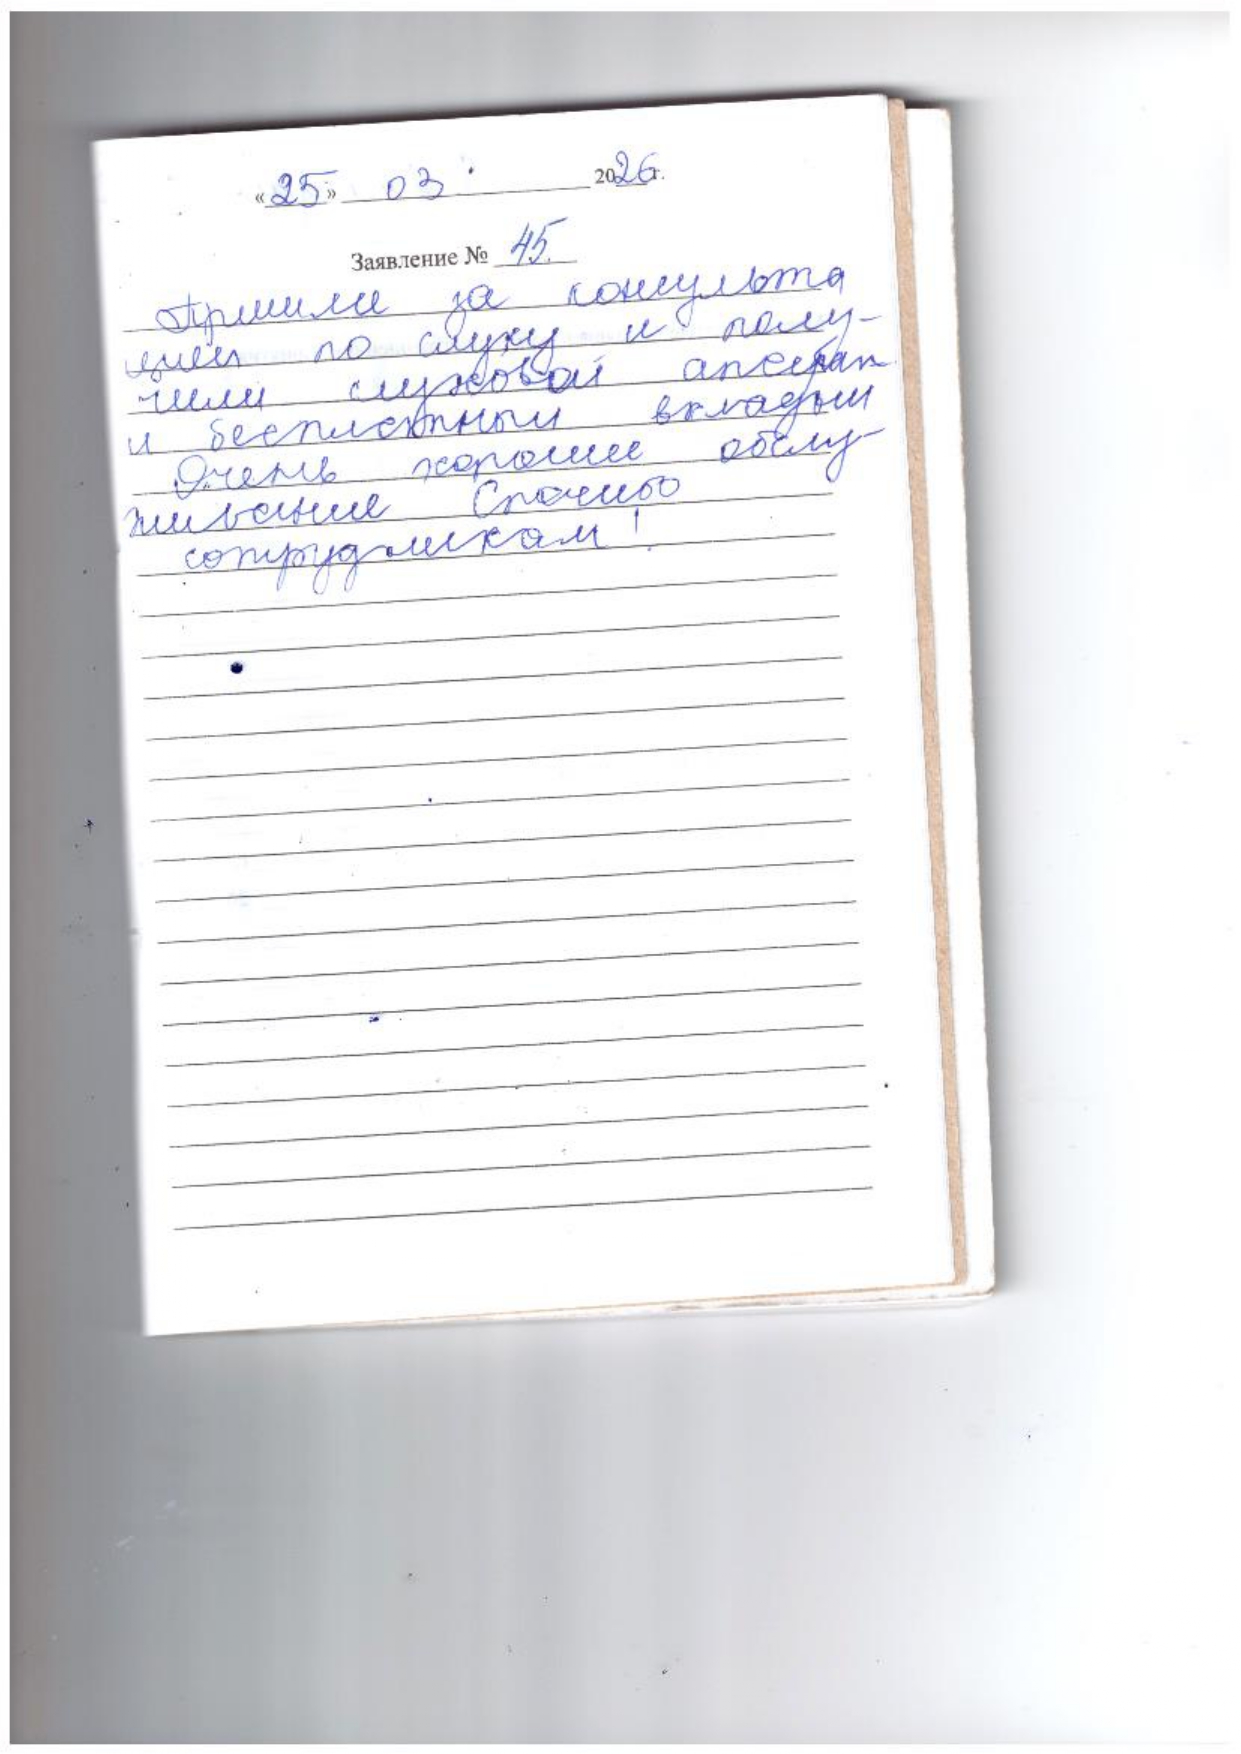 «25» 03. 2026г.
Заявление № 45.
Пришли за консульта
цией по слуху и полу-
чили слуховой аппарат
и бесплатный вкладыш
Очень хорошее обслу-
живание Спасибо
сотрудникам!